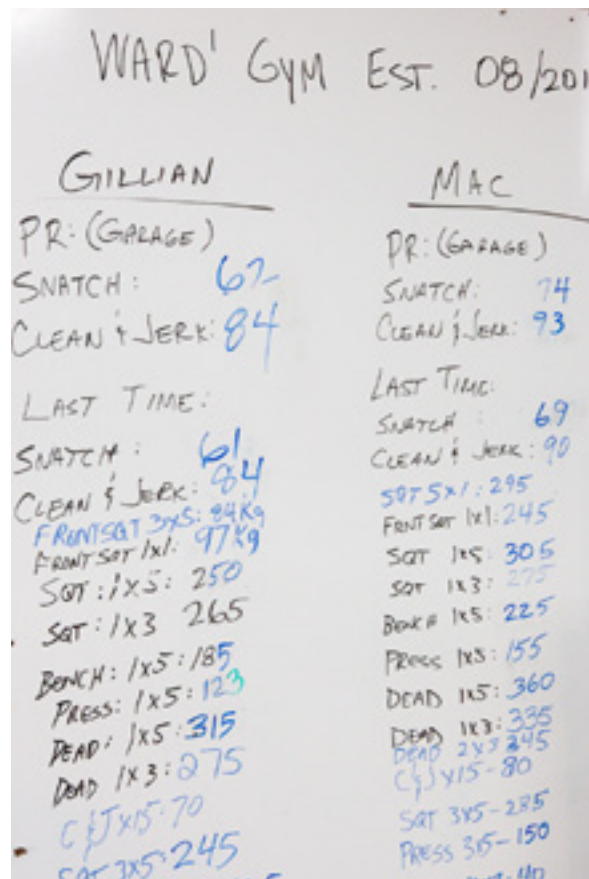 WARD' GYM EST. 08/201
GILLIAN
PR: (GARAGE)
SNATCH: 67
CLEAN & JERK: 84
LAST TIME:
SNATCH: 61
CLEAN & JERK: 84
FRONT SQT 3x5: 84Kg
FRONT SQT 1x1: 97Kg
SQT: 1x5: 250
SQT: 1x3 265
BENCH: 1x5: 185
PRESS: 1x5: 123
DEAD: 1x5: 315
DEAD 1x3: 275
C & J x15-70
SQT 3x5: 245
MAC
PR: (GARAGE)
SNATCH: 74
CLEAN & JERK: 93
LAST TIME:
SNATCH: 69
CLEAN & JERK: 90
SQT 5x1: 295
FRNT SQT 1x1: 245
SQT 1x5: 305
SQT 1x3: 275
BENCH 1x5: 225
PRESS 1x5: 155
DEAD 1x5: 360
DEAD 1x3: 335
DEAD 2x3 345
C & J x15-80
SQT 3x5-285
PRESS 3x5-150